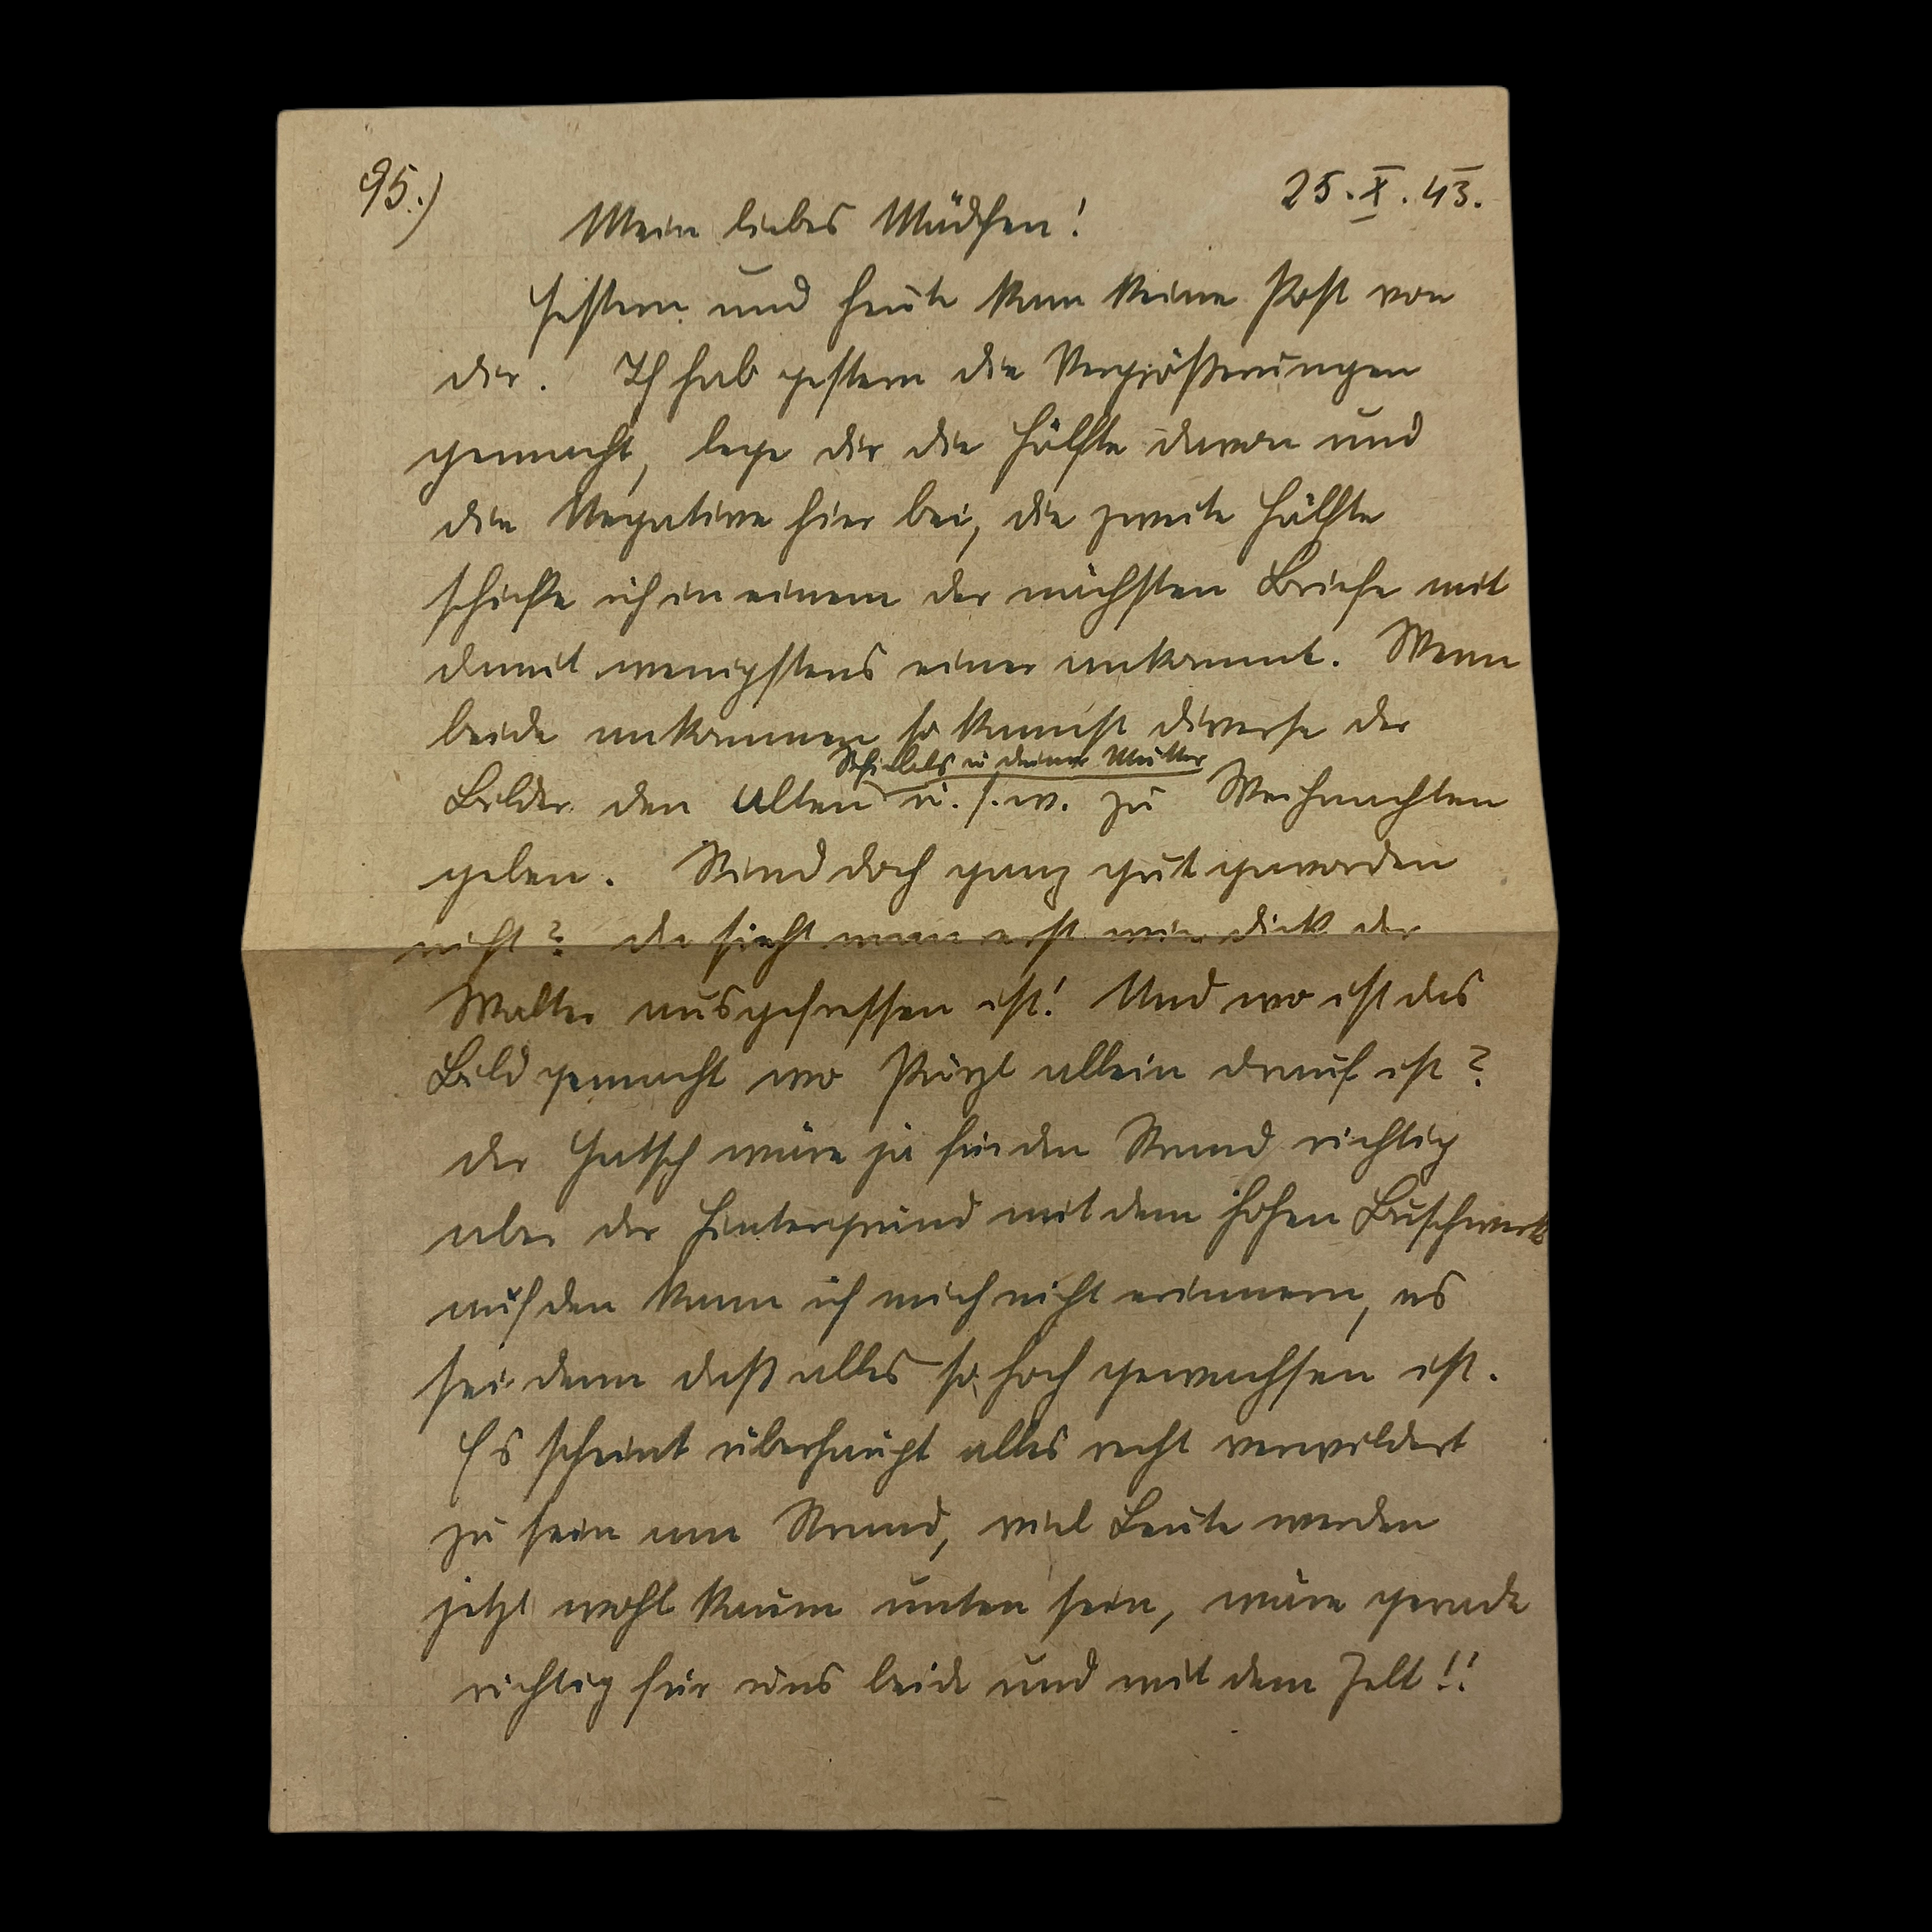 95.)
25.X.43.
Mein liebes Mädchen!
Gestern und heute kam keine Post von
dir. Ich hab gestern die Vergrößerungen
gemacht, lege dir die Hälfte davon und
die Negative hier bei, die zweite Hälfte
schicke ich in einem der nächsten Briefe mit
damit wenigstens einer ankommt. Wenn
beide ankommen so kannst diverse der
u deiner Mutter
Bilder den Alten u.s.w. zu Weihnachten
geben. Sind doch ganz gut geworden
nicht? da sieht man erst wie dick der
Walter ausgefressen ist! Und wo ist das
Bild gemacht wo Purzl allein drauf ist?
der Gatsch wäre ja für den Strand richtig
aber der Hintergrund mit dem hohen Buschwerk
auf den kann ich mich nicht erinnern, es
sei denn daß alles so hoch gewachsen ist.
Es scheint überhaupt alles recht verwildert
zu sein am Strand, viel Leute werden
jetzt wohl kaum unten sein, wäre gerade
richtig für uns beide und mit dem Zelt!!